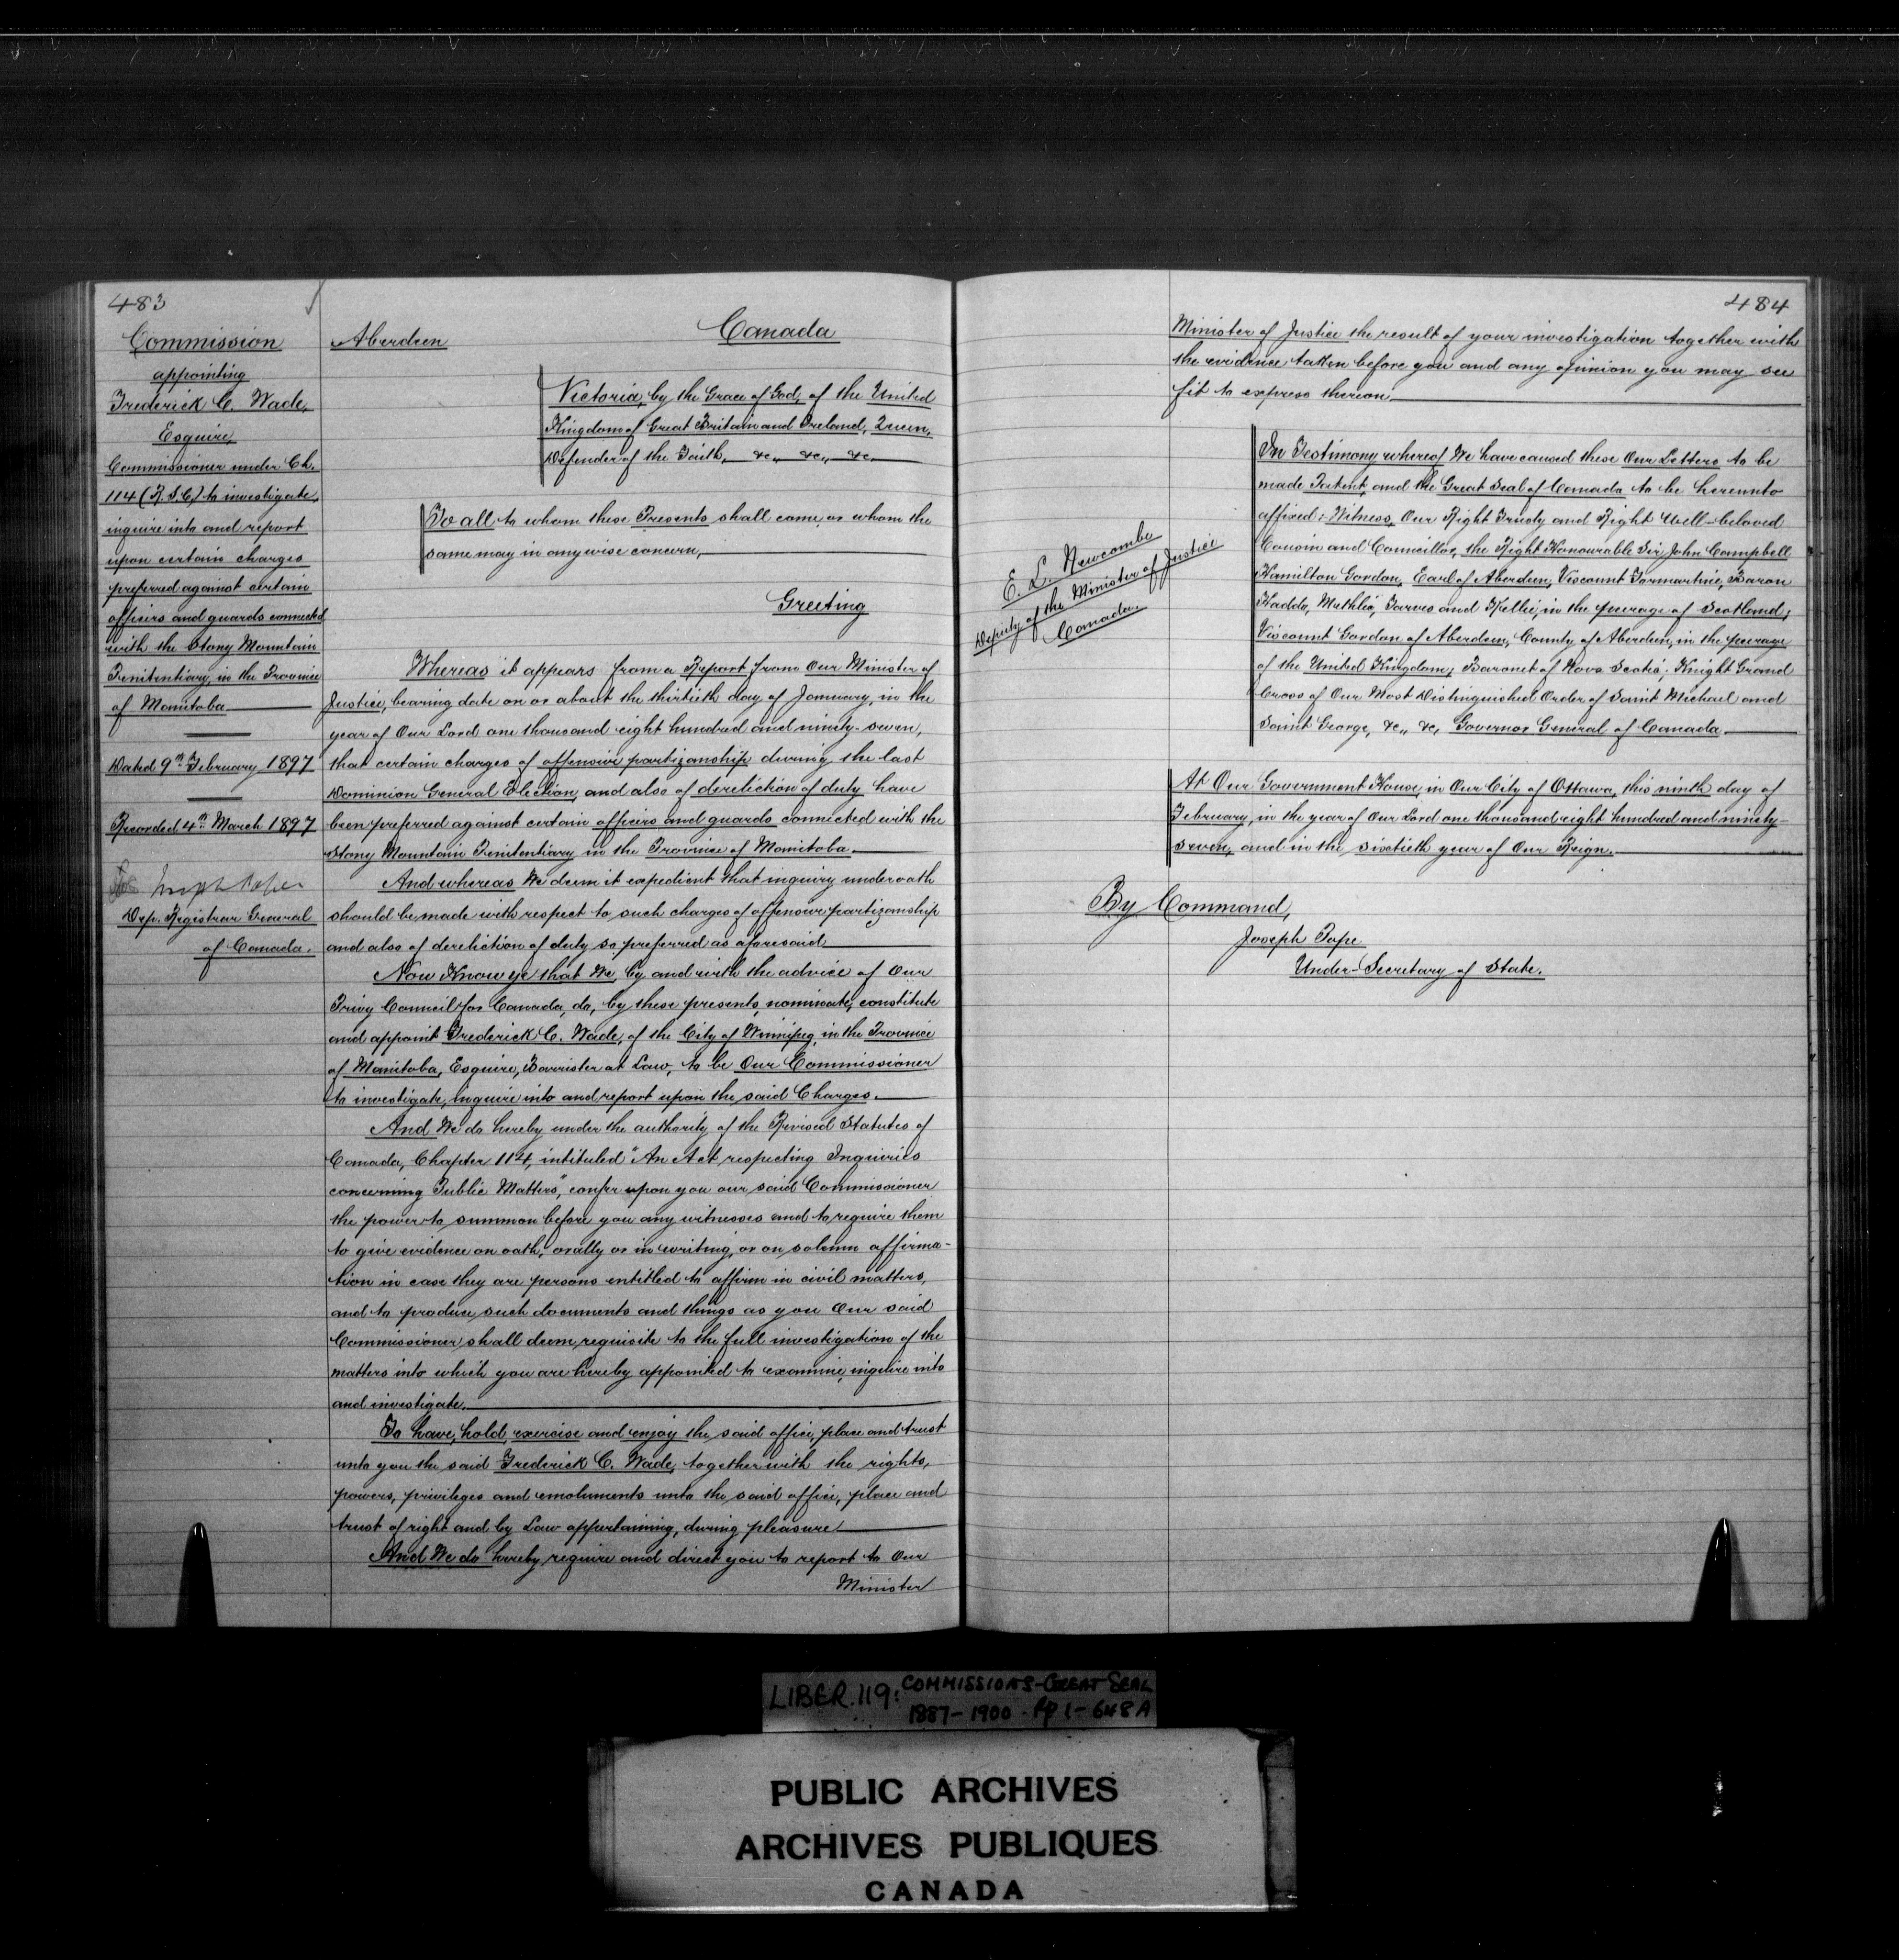 483
Commission
appointing
Frederick C. Wade,
Esquire,
Commissioner under Ch.
114 (R.S.C.) to investigate,
inquire into and report
upon certain charges
preferred against certain
officers and guards connected
with the Stony Mountain
Penitentiary, in the Province
of Manitoba
Dated 9th February 1897
Recorded 4th March 1897
Joseph Pope
Dep. Registrar General
of Canada.
Aberdeen
Canada
Victoria, by the Grace of God, of the United
Kingdom of Great Britain and Ireland, Queen,
Defender of the Faith, &c., &c., &c.
To all to whom these Presents shall come, or whom the
same may in anywise concern,
Greeting
Whereas it appears from a Report from Our Minister of
Justice, bearing date on or about the thirtieth day of January, in the
year of Our Lord one thousand eight hundred and ninety-seven,
that certain charges of offensive partizanship during the last
Dominion General Election, and also of dereliction of duty have
been preferred against certain officers and guards connected with the
Stony Mountain Penitentiary in the Province of Manitoba.
And whereas We deem it expedient that inquiry under oath
should be made with respect to such charges of offensive partizanship
and also of dereliction of duty so preferred as aforesaid
Now Know ye that We, by and with the advice of Our
Privy Council for Canada, do, by these presents, nominate, constitute
and appoint Frederick C. Wade, of the City of Winnipeg, in the Province
of Manitoba, Esquire, Barrister at Law, to be Our Commissioner
to investigate, inquire into and report upon the said Charges.
And We do hereby under the authority of the Revised Statutes of
Canada, Chapter 114, intituled "An Act respecting Inquiries
concerning Public Matters", confer upon you our said Commissioner
the power to summon before you any witnesses and to require them
to give evidence on oath, orally or in writing, or on solemn affirma-
tion in case they are persons entitled to affirm in civil matters,
and to produce such documents and things as you Our said
Commissioner shall deem requisite to the full investigation of the
matters into which you are hereby appointed to examine, inquire into
and investigate.
To have, hold, exercise and enjoy the said office, place and trust
unto you the said Frederick C. Wade, together with the rights,
powers, privileges and emoluments unto the said office, place and
trust of right and by Law appertaining, during pleasure
And We do hereby require and direct you to report to Our
Minister
484
Minister of Justice the result of your investigation together with
the evidence taken before you and any opinion you may see
fit to express thereon
E. L. Newcombe
Deputy of the Minister of Justice
Canada
In Testimony whereof We have caused these Our Letters to be
made Patent, and the Great Seal of Canada to be hereunto
affixed: Witness, Our Right Trusty and Right Well-beloved
Cousin and Councillor, the Right Honourable Sir John Campbell
Hamilton Gordon, Earl of Aberdeen; Viscount Formartine, Baron
Haddo, Methlic, Tarves and Kellie, in the peerage of Scotland;
Viscount Gordon of Aberdeen, County of Aberdeen, in the peerage
of the United Kingdom; Baronet of Nova Scotia; Knight Grand
Cross of Our Most Distinguished Order of Saint Michael and
Saint George, &c., &c., Governor General of Canada.
At Our Government House, in Our City of Ottawa, this ninth day of
February, in the year of Our Lord one thousand eight hundred and ninety-
seven, and in the sixtieth year of Our Reign.
By Command,
Joseph Pope
Under-Secretary of State.
LIBER.119: COMMISSIONS-GREAT SEAL
1887-1900 - pp 1-648A
PUBLIC ARCHIVES
ARCHIVES PUBLIQUES
CANADA